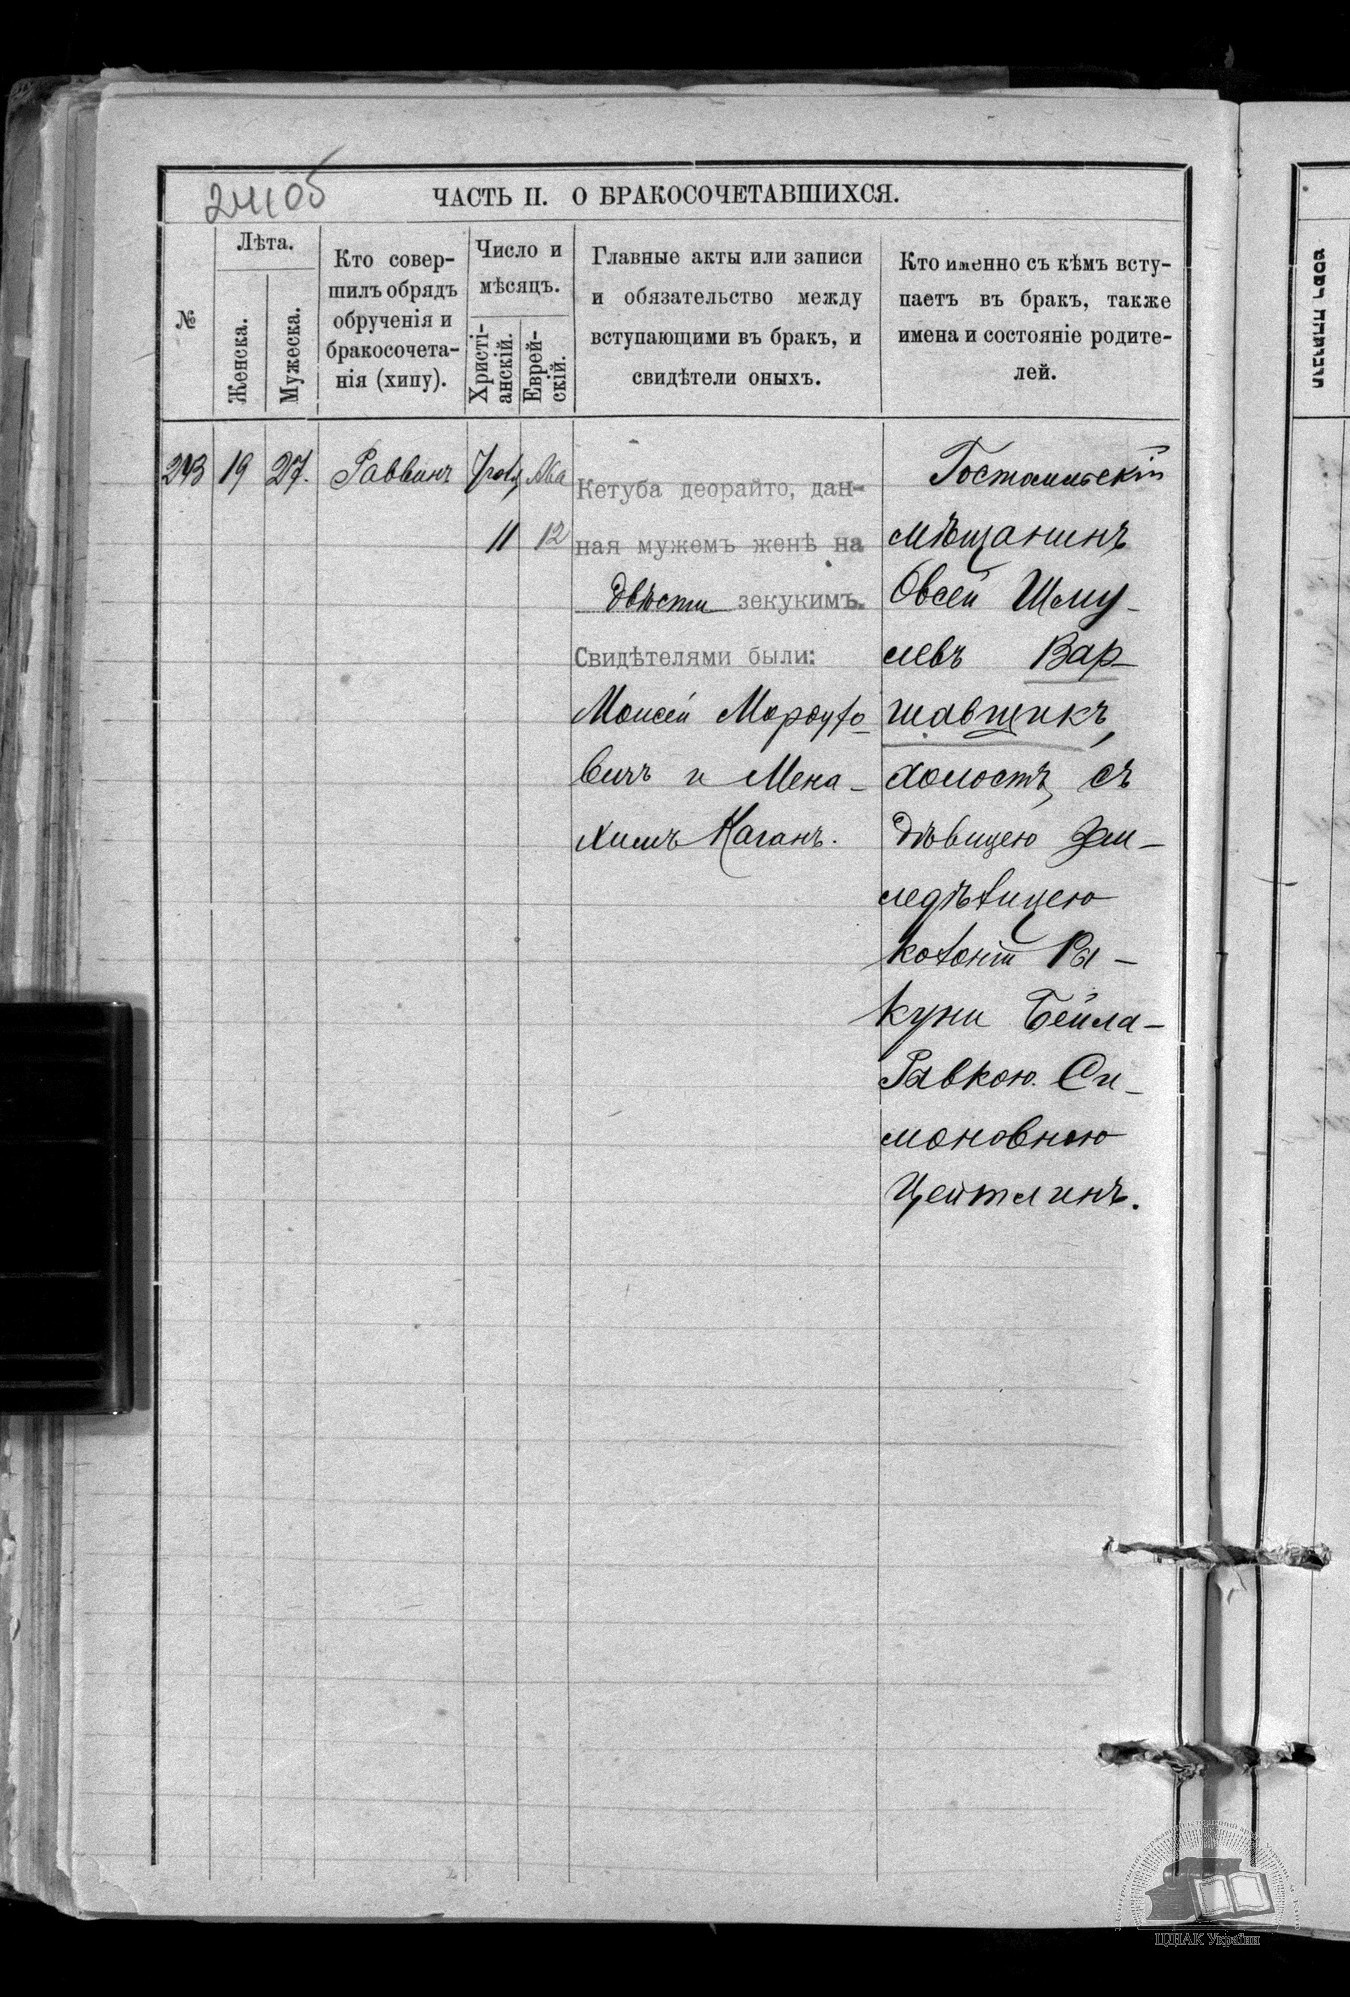 24105
ЧАСТЬ II. О БРАКОСОЧЕТАВШИХСЯ.
№
Лѣта.
Женска.
Мужеска.
Кто совер-
шилъ обрядъ
обрученія и
бракосочета-
нія (хипу).
Число и
мѣсяцъ.
Христі-
анскій.
Еврей-
скій.
Главные акты или записи
и обязательство между
вступающими въ бракъ, и
свидѣтели оныхъ.
Кто именно съ кѣмъ всту-
паетъ въ бракъ, также
имена и состояніе родите-
лей.
243 19 27. Раввинъ
11 12
Кетуба деорайто, дан-
ная мужемъ женѣ на
двѣсти зекукимъ.
Свидѣтелями были:
Моисей Мордухо-
вичъ и Мена-
химъ Каганъ.
Гостомльскій
мѣщанинъ
Овсей Шму-
левъ Вар-
шавщикъ,
холостъ, съ
дѣвицею зем-
ледѣлицею
колоніи Ры-
куни Бейла-
Рывкою Си-
моновною
Цейтлинъ.
ЦДІАК України